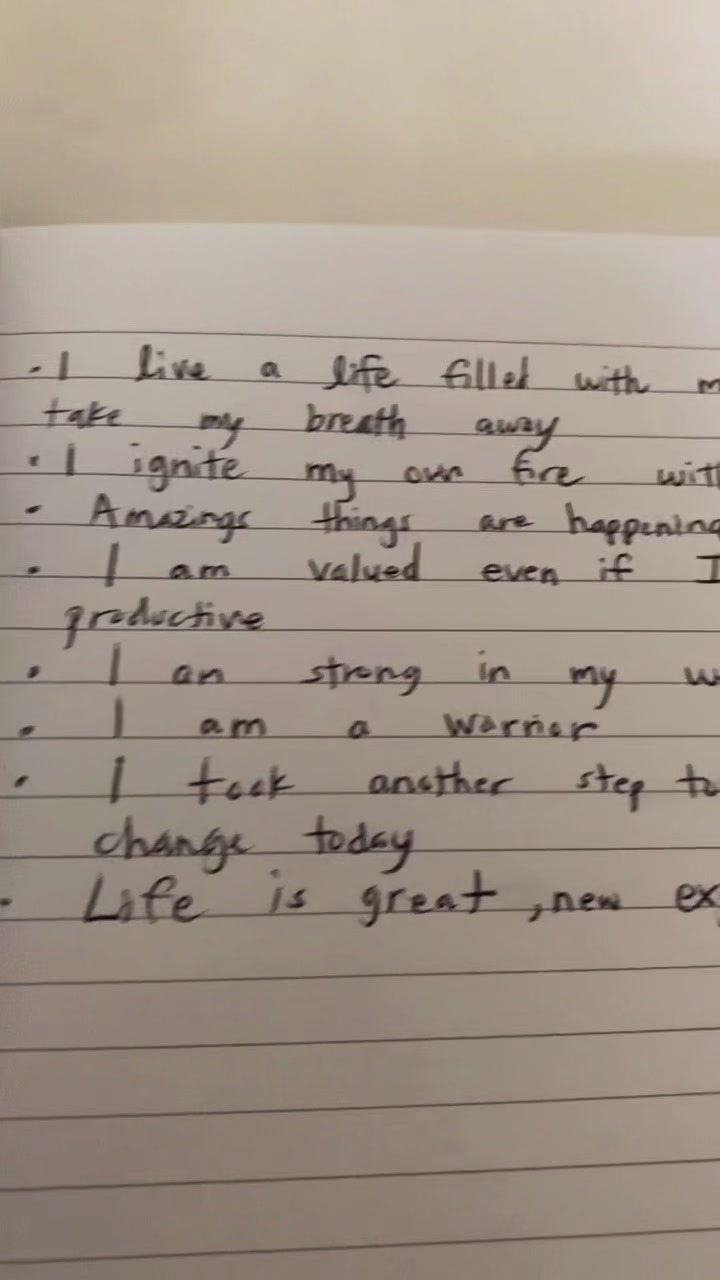 · I live a life filled with m
take my breath away
· I ignite my own fire with
· Amazings things are happening
· I am valued even if I
productive
· I an strong in my w
· I am a warrior
· I took another step to
change today
· Life is great, new ex